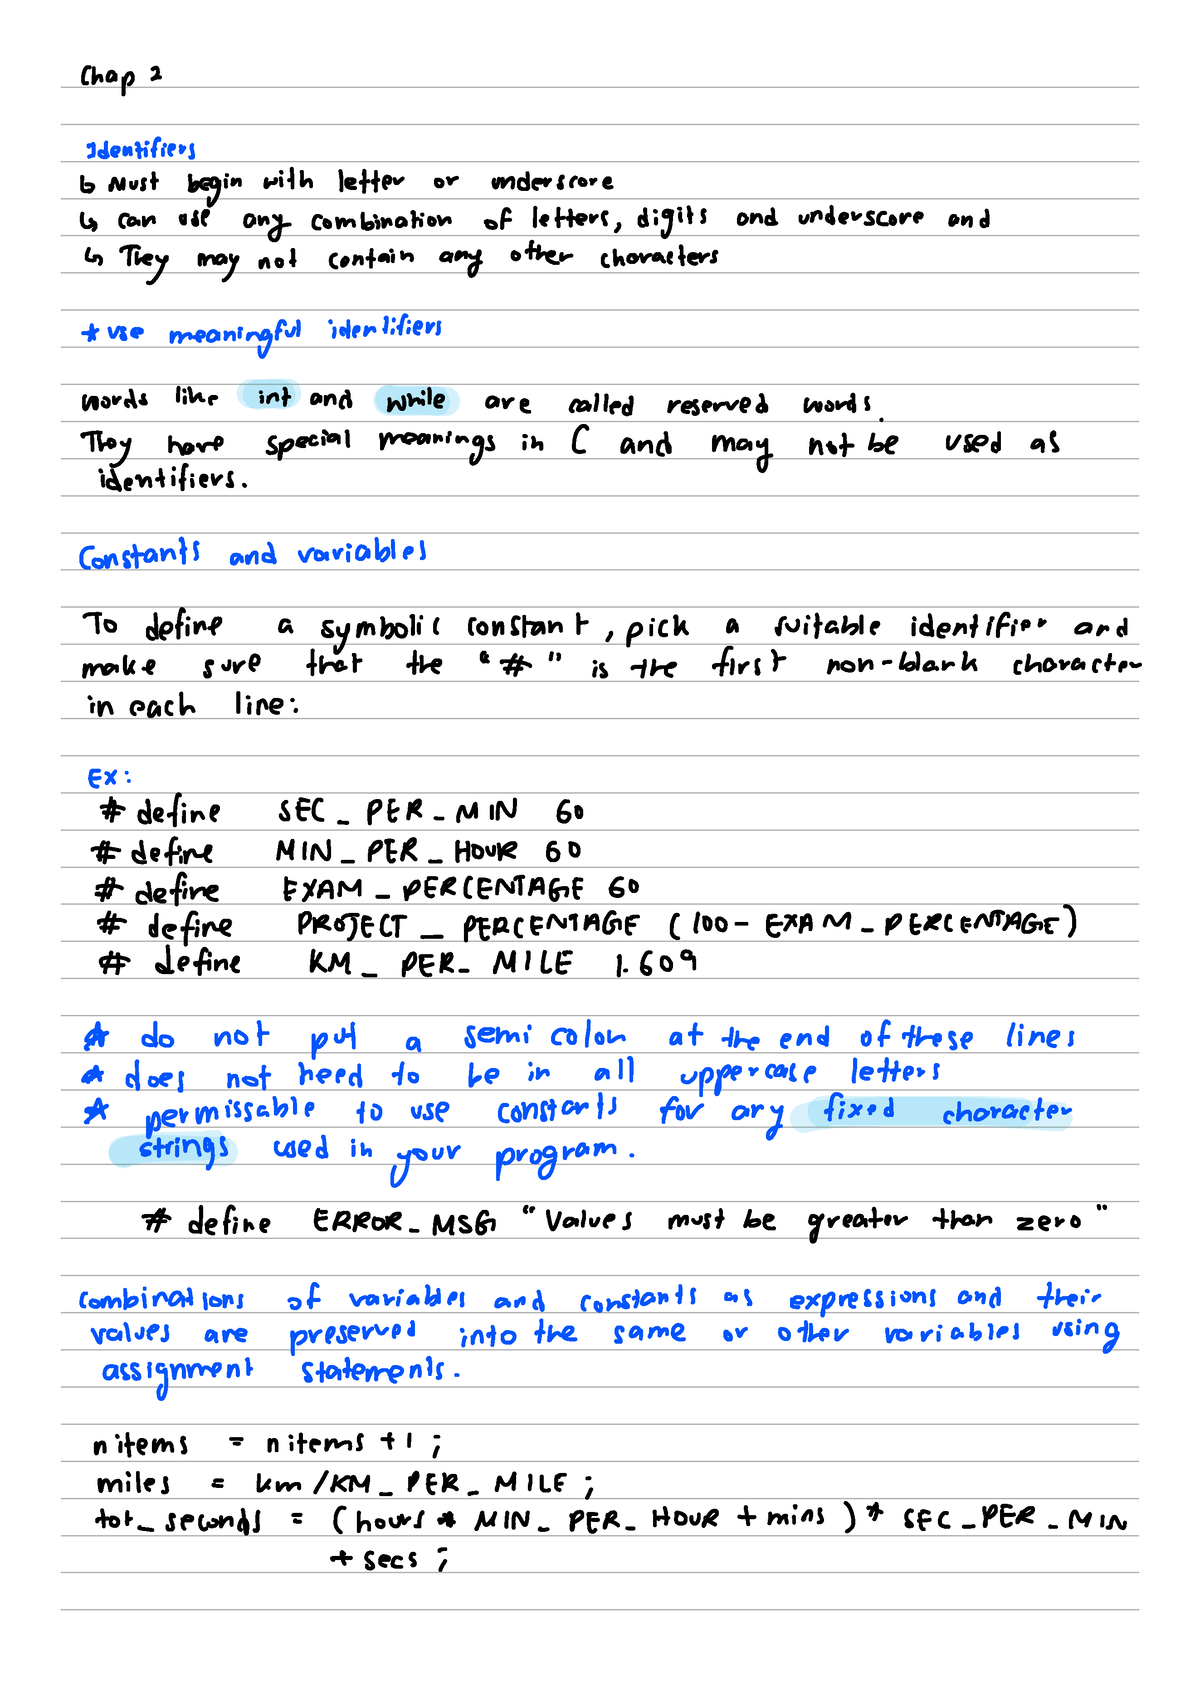 Chap 2
Identifiers
↳ Must begin with letter or underscore
↳ can use any combination of letters, digits and underscore and
↳ They may not contain any other characters
* use meaningful identifiers
words like int and while are called reserved words.
They have special meanings in C and may not be used as
identifiers.
Constants and variables
To define a symbolic constant, pick a suitable identifier and
make sure that the "#" is the first non-blank character
in each line:
Ex:
# define SEC_PER_MIN 60
# define MIN_PER_HOUR 60
# define EXAM_PERCENTAGE 60
# define PROJECT_PERCENTAGE (100 - EXAM_PERCENTAGE)
# define KM_PER_MILE 1.609
* do not put a semi colon at the end of these lines
* does not need to be in all uppercase letters
* permissable to use constants for any fixed character
strings used in your program.
# define ERROR_MSG "Values must be greater than zero"
combinations of variables and constants as expressions and their
values are preserved into the same or other variables using
assignment statements.
nitems = nitems + 1 ;
miles = km / KM_PER_MILE ;
tot_seconds = (hours * MIN_PER_HOUR + mins) * SEC_PER_MIN
+ secs ;